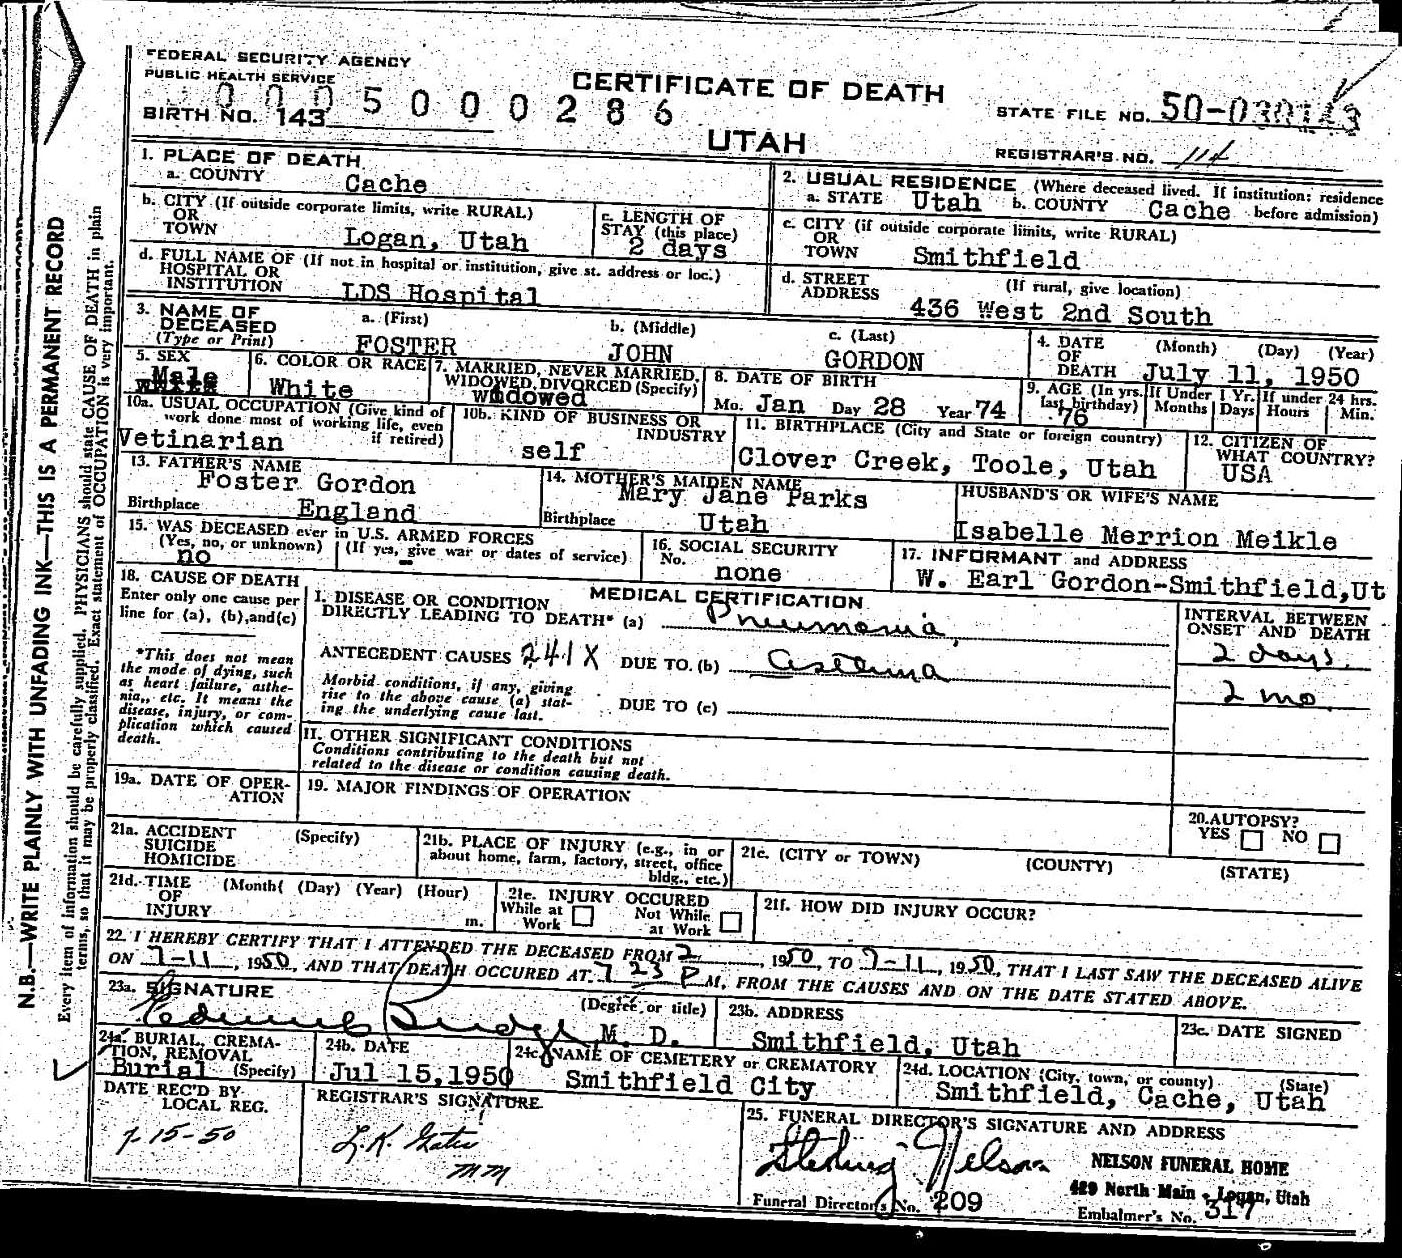 FEDERAL SECURITY AGENCY
PUBLIC HEALTH SERVICE
CERTIFICATE OF DEATH
0005000286
BIRTH NO. 143
UTAH
STATE FILE NO. 50-
REGISTRAR'S NO. 114
1. PLACE OF DEATH
a. COUNTY Cache
b. CITY (If outside corporate limits, write RURAL)
OR
TOWN Logan, Utah
c. LENGTH OF
STAY (this place)
2 days
d. FULL NAME OF (If not in hospital or institution, give st. address or loc.)
HOSPITAL OR
INSTITUTION LDS Hospital
2. USUAL RESIDENCE (Where deceased lived. If institution: residence
a. STATE Utah b. COUNTY Cache before admission)
c. CITY (if outside corporate limits, write RURAL)
OR
TOWN Smithfield
d. STREET (If rural, give location)
ADDRESS 436 West 2nd South
3. NAME OF
DECEASED
(Type or Print)
a. (First) b. (Middle) c. (Last)
FOSTER JOHN GORDON
4. DATE (Month) (Day) (Year)
OF
DEATH July 11, 1950
5. SEX
Male
6. COLOR OR RACE
White
7. MARRIED, NEVER MARRIED,
WIDOWED, DIVORCED (Specify)
widowed
8. DATE OF BIRTH
Mo. Jan Day 28 Year 74
9. AGE (In yrs. last birthday)
76
If Under 1 Yr.
Months Days
If under 24 hrs.
Hours Min.
10a. USUAL OCCUPATION (Give kind of
work done most of working life, even
if retired)
Vetinarian
10b. KIND OF BUSINESS OR
INDUSTRY
self
11. BIRTHPLACE (City and State or foreign country)
Clover Creek, Toole, Utah
12. CITIZEN OF
WHAT COUNTRY?
USA
13. FATHER'S NAME
Foster Gordon
Birthplace England
14. MOTHER'S MAIDEN NAME
Mary Jane Parks
Birthplace Utah
HUSBAND'S OR WIFE'S NAME
Isabelle Merrion Meikle
15. WAS DECEASED ever in U.S. ARMED FORCES
(Yes, no, or unknown) (If yes, give war or dates of service)
no -
16. SOCIAL SECURITY
No.
none
17. INFORMANT and ADDRESS
W. Earl Gordon-Smithfield,Ut
18. CAUSE OF DEATH
Enter only one cause per
line for (a), (b),and(c)
*This does not mean
the mode of dying, such
as heart failure, asthe-
nia,, etc. It means the
disease, injury, or com-
plication which caused
death.
MEDICAL CERTIFICATION
I. DISEASE OR CONDITION
DIRECTLY LEADING TO DEATH* (a) Pneumonia,
ANTECEDENT CAUSES 241X DUE TO (b) Asthma
Morbid conditions, if any, giving
rise to the above cause (a) stat-
ing the underlying cause last.
DUE TO (c)
INTERVAL BETWEEN
ONSET AND DEATH
2 days.
2 mo.
II. OTHER SIGNIFICANT CONDITIONS
Conditions contributing to the death but not
related to the disease or condition causing death.
19a. DATE OF OPER-
ATION
19. MAJOR FINDINGS OF OPERATION
20.AUTOPSY?
YES NO
21a. ACCIDENT (Specify)
SUICIDE
HOMICIDE
21b. PLACE OF INJURY (e.g., in or
about home, farm, factory, street, office
bldg., etc.)
21c. (CITY or TOWN) (COUNTY) (STATE)
21d. TIME (Month( (Day) (Year) (Hour)
OF
INJURY m.
21e. INJURY OCCURED
While at Work Not While at Work
21f. HOW DID INJURY OCCUR?
22. I HEREBY CERTIFY THAT I ATTENDED THE DECEASED FROM 2, 1950, TO 7-11, 1950, THAT I LAST SAW THE DECEASED ALIVE
ON 7-11, 1950, AND THAT DEATH OCCURED AT 7 23 P M, FROM THE CAUSES AND ON THE DATE STATED ABOVE.
23a. SIGNATURE (Degree or title)
M. D.
23b. ADDRESS
Smithfield, Utah
23c. DATE SIGNED
24a. BURIAL, CREMA-
TION, REMOVAL
Burial (Specify)
24b. DATE
Jul 15,1950
24c. NAME OF CEMETERY or CREMATORY
Smithfield City
24d. LOCATION (City, town, or county) (State)
Smithfield, Cache, Utah
DATE REC'D BY
LOCAL REG.
7-15-50
REGISTRAR'S SIGNATURE
L.K. Gates
MM
25. FUNERAL DIRECTOR'S SIGNATURE AND ADDRESS
Sterling Nelson
NELSON FUNERAL HOME
429 North Main - Logan, Utah
Funeral Directors No. 209
Embalmer's No. 317
N.B.—WRITE PLAINLY WITH UNFADING INK—THIS IS A PERMANENT RECORD
Every item of information should be carefully supplied. PHYSICIANS should state CAUSE OF DEATH in plain
terms, so that it may be properly classified. Exact statement of OCCUPATION is very important.